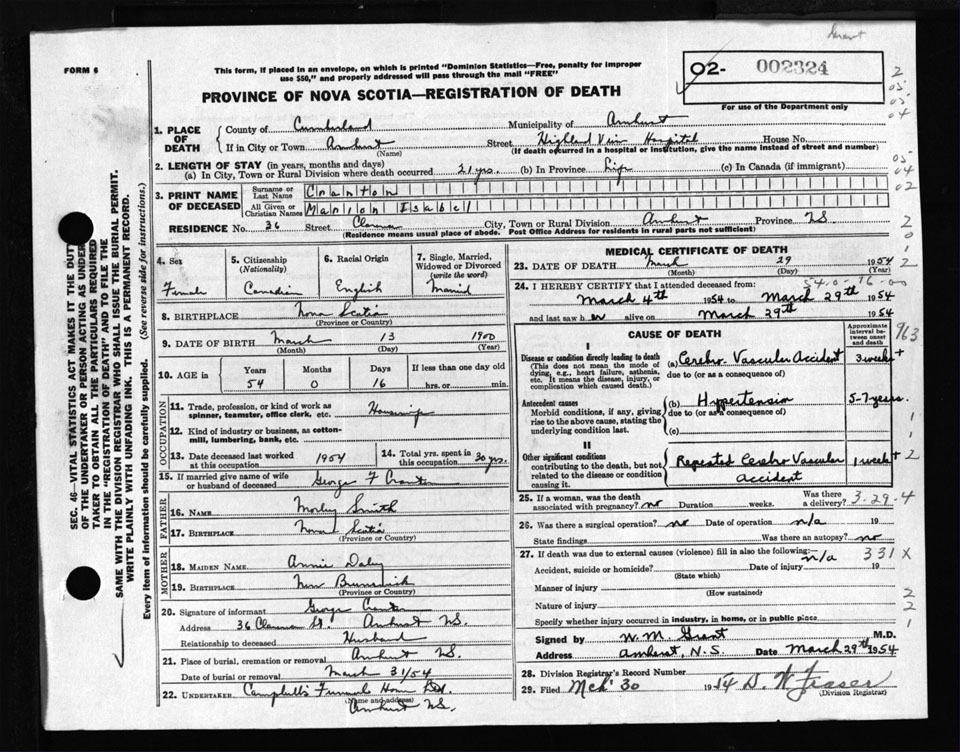 Grant
FORM 6
This form, if placed in an envelope, on which is printed "Dominion Statistics—Free, penalty for improper
use $50," and properly addressed will pass through the mail "FREE"
02- 002324
For use of the Department only
PROVINCE OF NOVA SCOTIA—REGISTRATION OF DEATH
1. PLACE OF DEATH
County of Cumberland Municipality of Amherst
If in City or Town Amherst Street Highland View Hospital House No.
(Name) (If death occurred in a hospital or institution, give the name instead of street and number)
2. LENGTH OF STAY (in years, months and days)
(a) In City, Town or Rural Division where death occurred 21 yrs. (b) In Province Life (c) In Canada (if immigrant)
3. PRINT NAME OF DECEASED
Surname or Last Name Cranton
All Given or Christian Names Marion Isabel
RESIDENCE No. 36 Street City, Town or Rural Division Amherst Province NS
(Residence means usual place of abode. Post Office Address for residents in rural parts not sufficient)
4. Sex Female
5. Citizenship (Nationality) Canadian
6. Racial Origin English
7. Single, Married, Widowed or Divorced (write the word) Married
8. BIRTHPLACE Nova Scotia
(Province or Country)
9. DATE OF BIRTH March 13 1900
(Month) (Day) (Year)
10. AGE in Years Months Days If less than one day old
54 0 16 hrs. or min.
OCCUPATION
11. Trade, profession, or kind of work as spinner, teamster, office clerk, etc. Housewife
12. Kind of industry or business, as cotton-mill, lumbering, bank, etc.
13. Date deceased last worked at this occupation 1954
14. Total yrs. spent in this occupation 30 yrs.
15. If married give name of wife or husband of deceased George F Cranton
FATHER
16. NAME Morley Smith
17. BIRTHPLACE Nova Scotia
(Province or Country)
MOTHER
18. MAIDEN NAME Annie Daley
19. BIRTHPLACE New Brunswick
(Province or Country)
20. Signature of informant George Cranton
Address 36 St. Amherst NS.
Relationship to deceased Husband
21. Place of burial, cremation or removal Amherst NS.
Date of burial or removal March 31/54
22. UNDERTAKER Campbell's Funeral Home Ltd.
(Name and address)
Amherst NS.
MEDICAL CERTIFICATE OF DEATH
23. DATE OF DEATH March 29 1954
(Month) (Day) (Year)
54-0-16-00
24. I HEREBY CERTIFY that I attended deceased from:
March 4th 1954 to March 29th 1954
and last saw h er alive on March 29th 1954
CAUSE OF DEATH
Approximate interval between onset and death
963
I
Disease or condition directly leading to death
(This does not mean the mode of dying, e.g., heart failure, asthenia, etc. It means the disease, injury, or complication which caused death.)
(a) Cerebro. Vascular Accident 3 weeks+
due to (or as a consequence of)
Antecedent causes
Morbid conditions, if any, giving rise to the above cause, stating the underlying condition last.
(b) Hypertension 5-7 years.
due to (or as a consequence of)
(c)
II
Other significant conditions
contributing to the death, but not related to the disease or condition causing it.
Repeated Cerebro Vascular 1 week+
accident
25. If a woman, was the death associated with pregnancy? no Duration weeks. Was there a delivery? 3-29-4
26. Was there a surgical operation? no Date of operation n/a 19
State findings Was there an autopsy? no
27. If death was due to external causes (violence) fill in also the following: n/a 331 X
Accident, suicide or homicide? Date of injury 19
(State which)
Manner of injury
(How sustained)
Nature of injury
Specify whether injury occurred in industry, in home, or in public place
Signed by W. M. Grant M.D.
Address Amherst, N.S. Date March 29th 1954
28. Division Registrar's Record Number
29. Filed Mch 30 1954 D. W Fraser
(Division Registrar)
SEC. 46—VITAL STATISTICS ACT MAKES IT THE DUTY
OF THE UNDERTAKER OR PERSON ACTING AS UNDER-
TAKER TO OBTAIN ALL THE PARTICULARS REQUIRED
IN THE "REGISTRATION OF DEATH" AND TO FILE THE
SAME WITH THE DIVISION REGISTRAR WHO SHALL ISSUE THE BURIAL PERMIT.
WRITE PLAINLY WITH UNFADING INK. THIS IS A PERMANENT RECORD.
Every item of information should be carefully supplied. (See reverse side for instructions.)